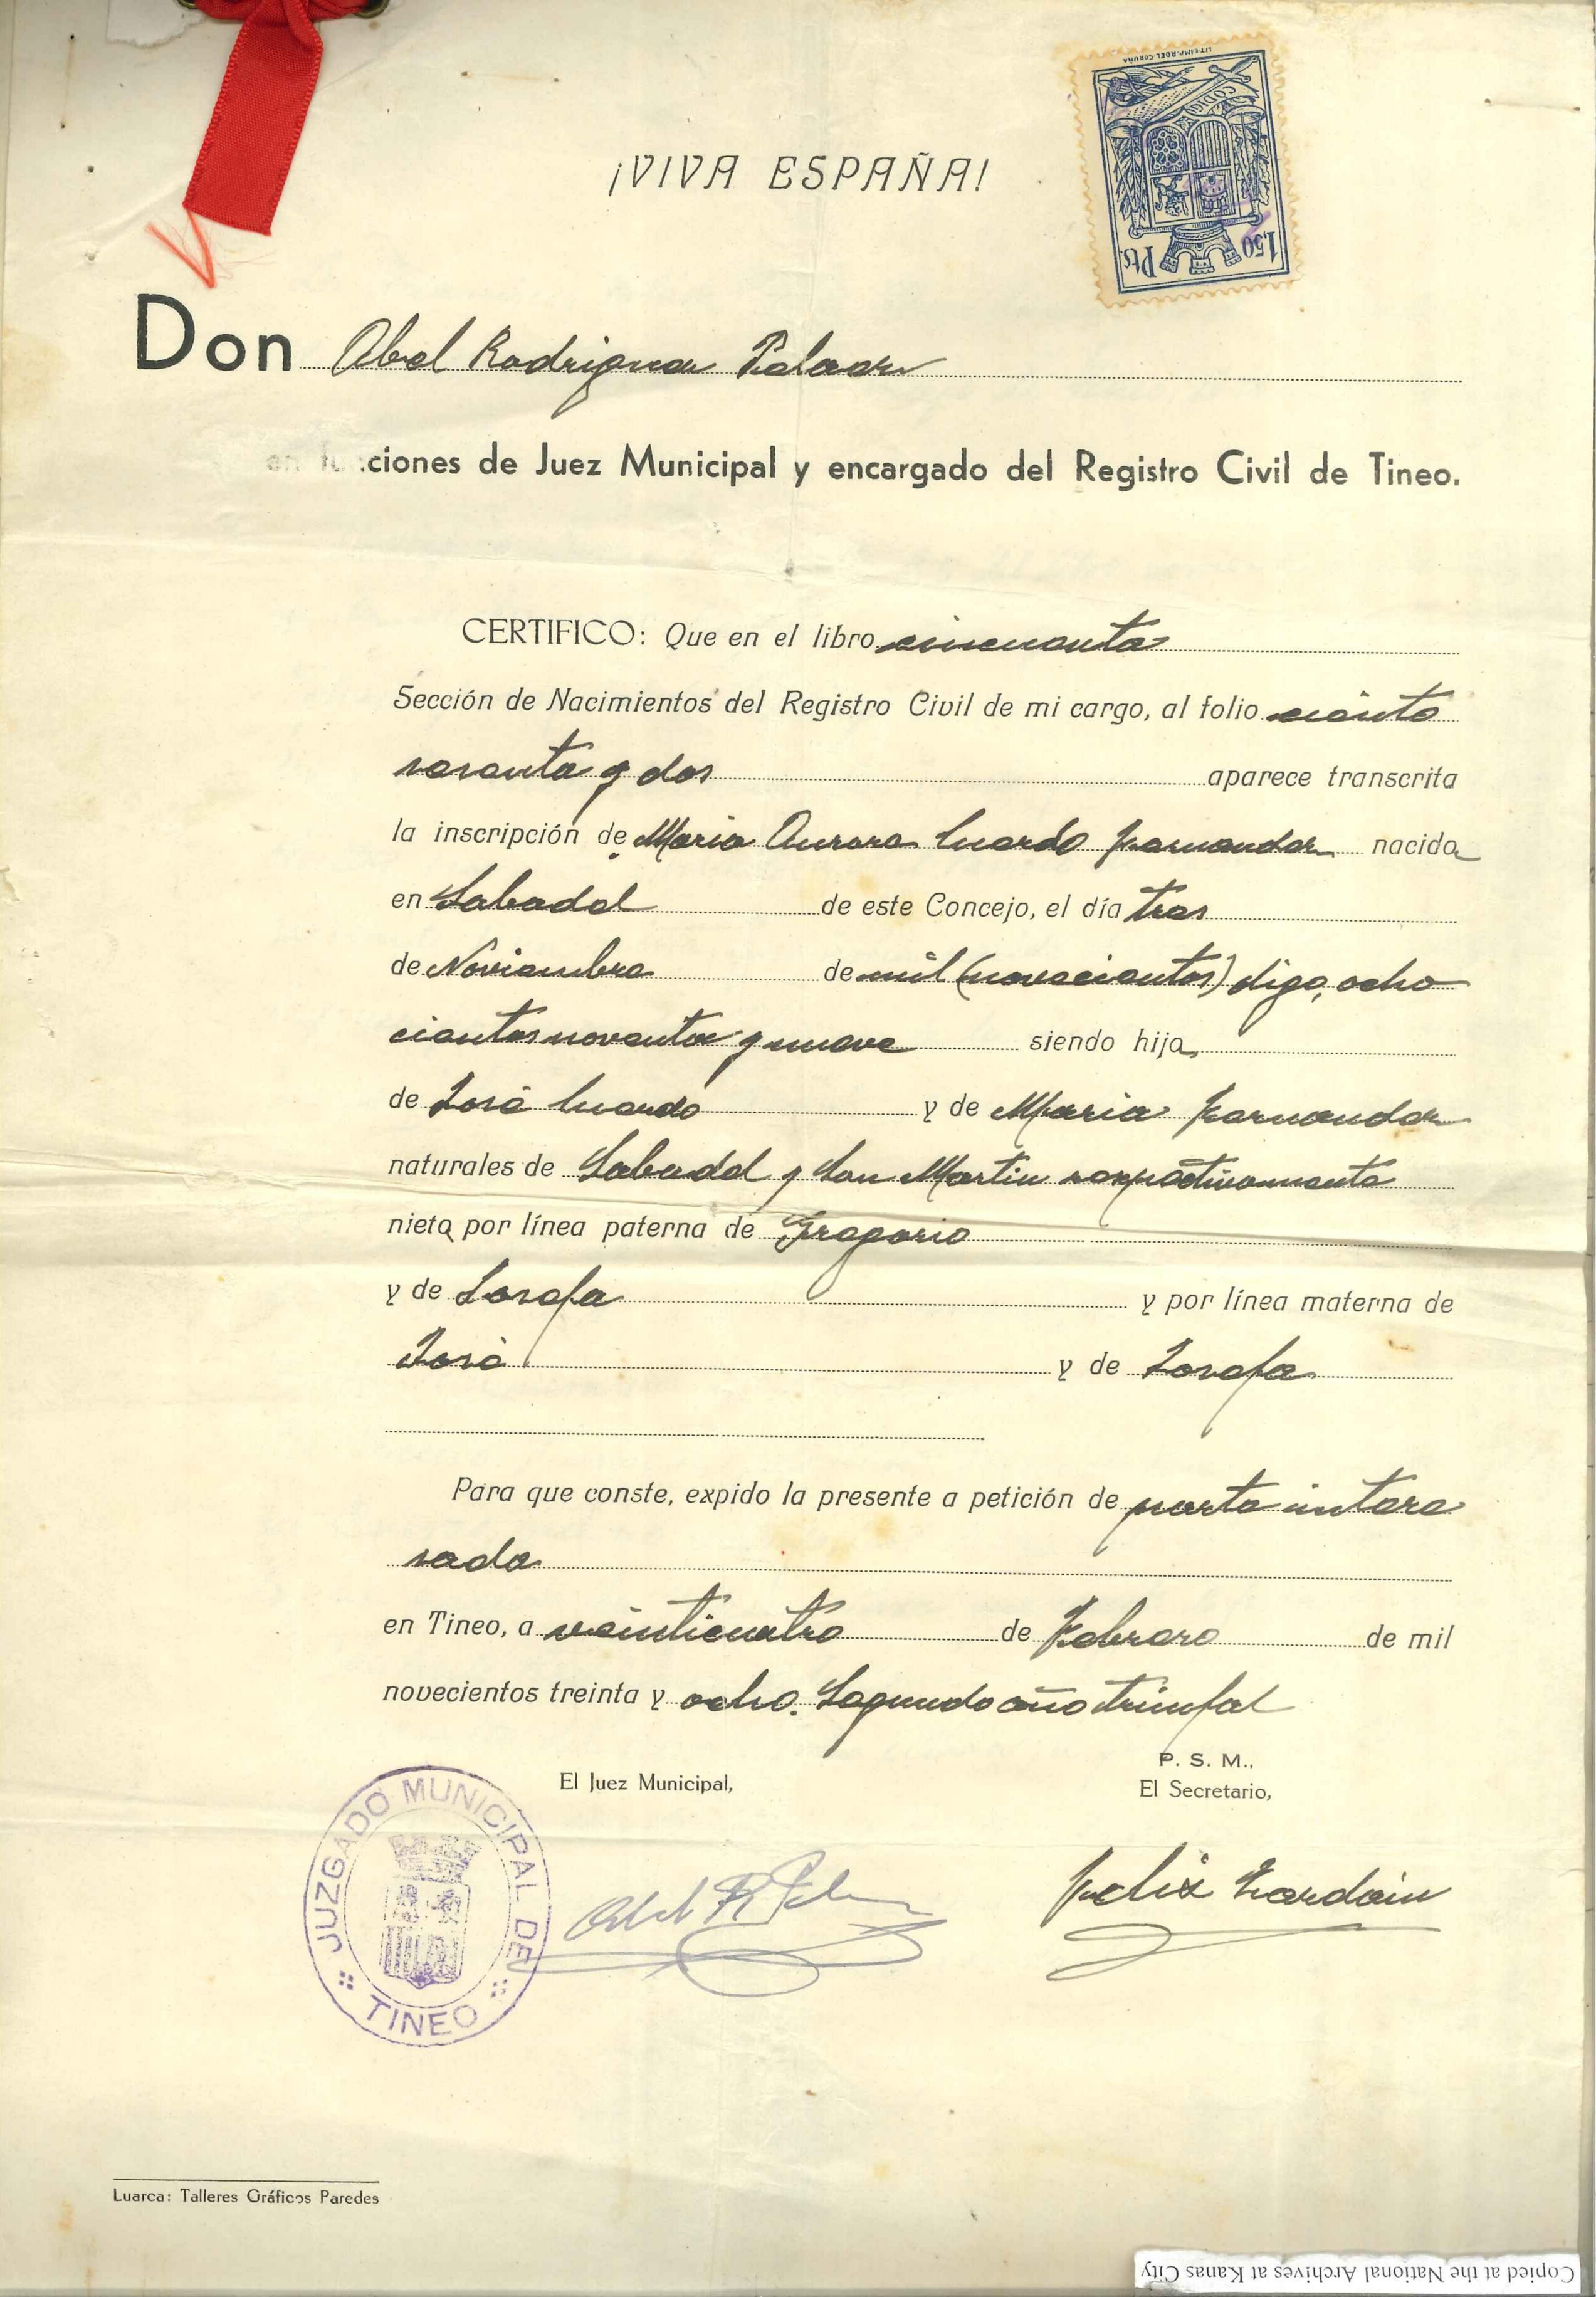 LIT. E IMP. ROEL CORUÑA
CODIGO
1,50 Pts.
¡VIVA ESPAÑA!
Don Abel Rodriguez Pelaez
en funciones de Juez Municipal y encargado del Registro Civil de Tineo.
CERTIFICO: Que en el libro cincuenta
Sección de Nacimientos del Registro Civil de mi cargo, al folio ciento
sesenta y dos aparece transcrita
la inscripción de Maria Aurora Fernandez nacida
en Sabadel de este Concejo, el día tres
de Noviembre de mil (novecientos) digo, ocho
cientos noventa y nueve siendo hija
de José y de Maria Fernandez
naturales de Sabadel y San Martin respectivamente
nieta por línea paterna de Gregorio
y de Josefa y por línea materna de
José y de Josefa
Para que conste, expido la presente a petición de parte intere
sada
en Tineo, a veinticuatro de Febrero de mil
novecientos treinta y ocho. Segundo año triunfal
P. S. M.,
El Juez Municipal, El Secretario,
JUZGADO MUNICIPAL DE TINEO
Abel R Pelaez Felix
Luarca: Talleres Gráficos Paredes
Copied at the National Archives at Kanas City